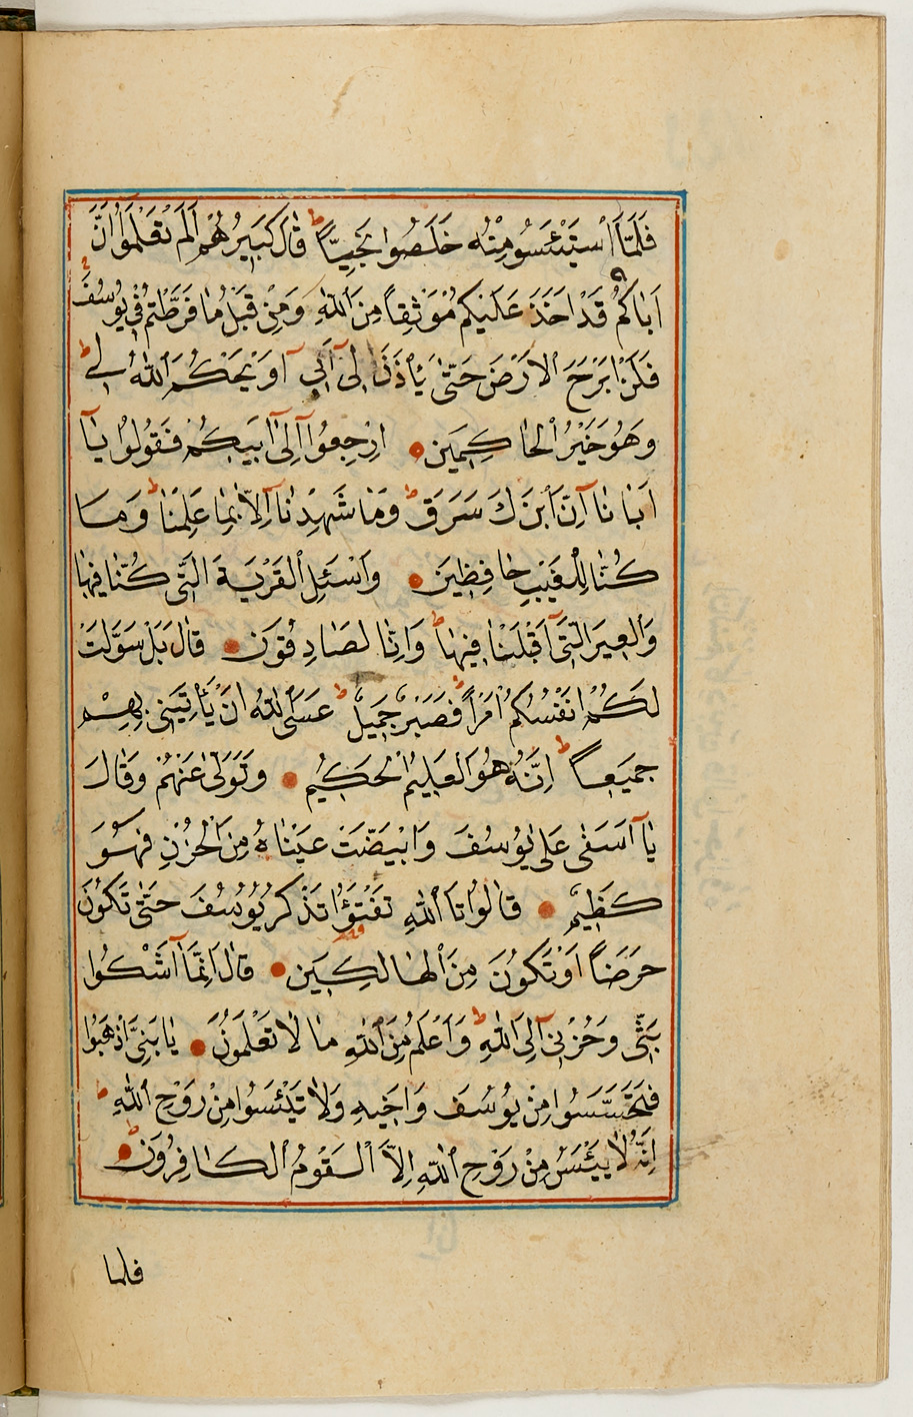 فَلَمَّا ٱسْتَيْئَسُوا مِنْهُ خَلَصُوا نَجِيّاً ط قَالَ كَبِيرُهُمْ اَلَمْ تَعْلَمُوا اَنَّ
اَبَاكُمْ قَدْ اَخَذَ عَلَيْكُمْ مَوْثِقاً مِنَ ٱللّٰهِ وَمِنْ قَبْلُ مَا فَرَّطْتُمْ فِى يُوسُفَ
فَلَنْ اَبْرَحَ الْاَرْضَ حَتّٰى يَأْذَنَ لِى اَبِى اَوْ يَحْكُمَ ٱللّٰهُ لِى ط
وَهُوَ خَيْرُ ٱلْحَاكِمِينَ ارْجِعُوا اِلٰى اَبِيكُمْ فَقُولُوا يَا
اَبَانَا اِنَّ ٱبْنَكَ سَرَقَ ط وَمَا شَهِدْنَا اِلَّا بِمَا عَلِمْنَا ط وَمَا
كُنَّا لِلْغَيْبِ حَافِظِينَ وَٱسْئَلِ ٱلْقَرْيَةَ الَّتِى كُنَّا فِيهَا
وَٱلْعِيرَ الَّتِى اَقْبَلْنَا فِيهَا ط وَاِنَّا لَصَادِقُونَ قَالَ بَلْ سَوَّلَتْ
لَكُمْ اَنْفُسُكُمْ اَمْراً ط فَصَبْرٌ جَمِيلٌ ط عَسَى ٱللّٰهُ اَنْ يَأْتِيَنِى بِهِمْ
جَمِيعاً ط اِنَّهُ هُوَ ٱلْعَلِيمُ ٱلْحَكِيمُ وَتَوَلّٰى عَنْهُمْ وَقَالَ
يَا اَسَفٰى عَلٰى يُوسُفَ وَابْيَضَّتْ عَيْنَاهُ مِنَ ٱلْحُزْنِ فَهُوَ
كَظِيمٌ قَالُوا تَاٱللّٰهِ تَفْتَؤُا تَذْكُرُ يُوسُفَ حَتّٰى تَكُونَ
حَرَضاً اَوْ تَكُونَ مِنَ ٱلْهَالِكِينَ قَالَ اِنَّمَا اَشْكُوا
بَثِّى وَحُزْنِى اِلَى ٱللّٰهِ ط وَاَعْلَمُ مِنَ ٱللّٰهِ مَا لَا تَعْلَمُونَ يَا بَنِىَّ ٱذْهَبُوا
فَتَحَسَّسُوا مِنْ يُوسُفَ وَاَخِيهِ وَلَا تَيْئَسُوا مِنْ رَوْحِ ٱللّٰهِ ط
اِنَّهُ لَا يَيْئَسُ مِنْ رَوْحِ ٱللّٰهِ اِلَّا ٱلْقَوْمُ ٱلْكَافِرُونَ ط
فلما